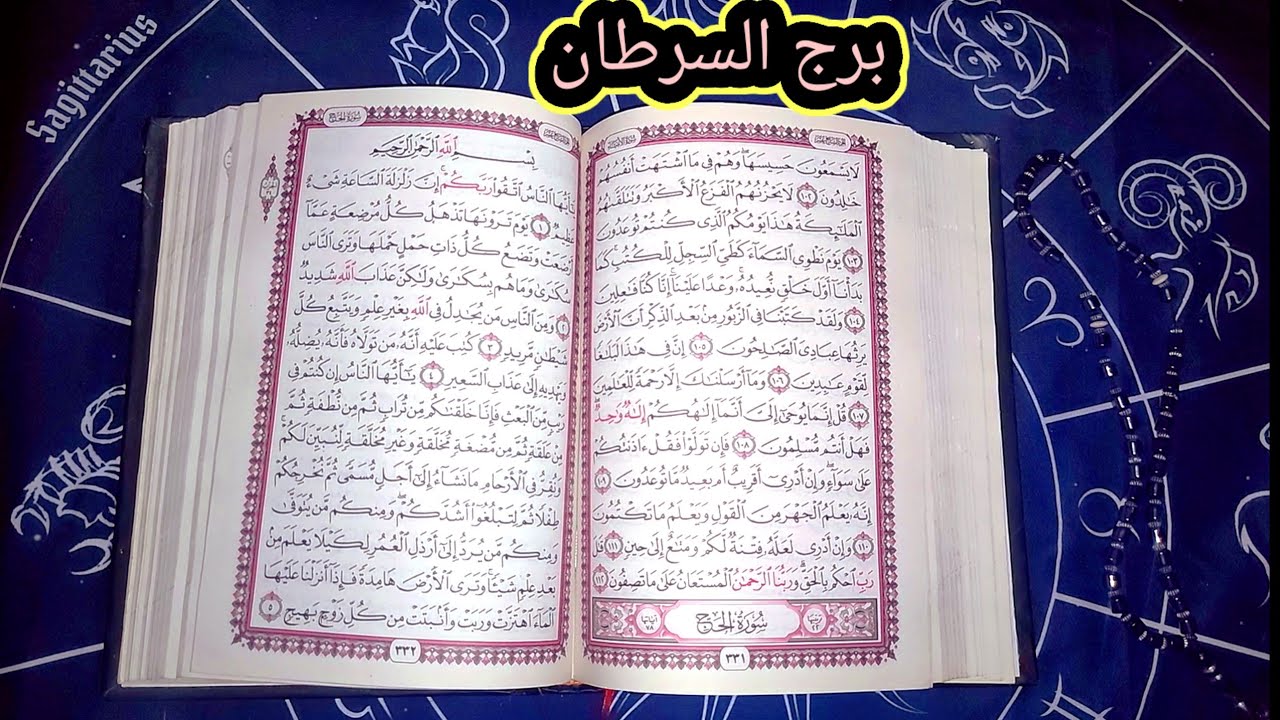 برج السرطان
Sagittarius
لَا يَسْمَعُونَ حَسِيسَهَا ۖ وَهُمْ فِي مَا اشْتَهَتْ أَنفُسُهُمْ
خَالِدُونَ ١٠٢ لَا يَحْزُنُهُمُ الْفَزَعُ الْأَكْبَرُ وَتَتَلَقَّاهُمُ
الْمَلَائِكَةُ هَٰذَا يَوْمُكُمُ الَّذِي كُنتُمْ تُوعَدُونَ
١٠٣ يَوْمَ نَطْوِي السَّمَاءَ كَطَيِّ السِّجِلِّ لِلْكُتُبِ ۚ كَمَا
بَدَأْنَا أَوَّلَ خَلْقٍ نُّعِيدُهُ ۚ وَعْدًا عَلَيْنَا ۚ إِنَّا كُنَّا فَاعِلِينَ
١٠٤ وَلَقَدْ كَتَبْنَا فِي الزَّبُورِ مِن بَعْدِ الذِّكْرِ أَنَّ الْأَرْضَ
يَرِثُهَا عِبَادِيَ الصَّالِحُونَ ١٠٥ إِنَّ فِي هَٰذَا لَبَلَاغًا
لِّقَوْمٍ عَابِدِينَ ١٠٦ وَمَا أَرْسَلْنَاكَ إِلَّا رَحْمَةً لِّلْعَالَمِينَ
١٠٧ قُلْ إِنَّمَا يُوحَىٰ إِلَيَّ أَنَّمَا إِلَٰهُكُمْ إِلَٰهٌ وَاحِدٌ ۖ
فَهَلْ أَنتُم مُّسْلِمُونَ ١٠٨ فَإِن تَوَلَّوْا فَقُلْ آذَنتُكُمْ
عَلَىٰ سَوَاءٍ ۖ وَإِنْ أَدْرِي أَقَرِيبٌ أَم بَعِيدٌ مَّا تُوعَدُونَ ١٠٩
إِنَّهُ يَعْلَمُ الْجَهْرَ مِنَ الْقَوْلِ وَيَعْلَمُ مَا تَكْتُمُونَ
١١٠ وَإِنْ أَدْرِي لَعَلَّهُ فِتْنَةٌ لَّكُمْ وَمَتَاعٌ إِلَىٰ حِينٍ ١١١ قَالَ
رَبِّ احْكُم بِالْحَقِّ ۗ وَرَبُّنَا الرَّحْمَٰنُ الْمُسْتَعَانُ عَلَىٰ مَا تَصِفُونَ ١١٢
سُورَةُ الحَجّ
٣٣١
سُورَةُ الحَجّ
بِسْمِ اللَّهِ الرَّحْمَٰنِ الرَّحِيمِ
يَا أَيُّهَا النَّاسُ اتَّقُوا رَبَّكُمْ ۚ إِنَّ زَلْزَلَةَ السَّاعَةِ شَيْءٌ
عَظِيمٌ ١ يَوْمَ تَرَوْنَهَا تَذْهَلُ كُلُّ مُرْضِعَةٍ عَمَّا
أَرْضَعَتْ وَتَضَعُ كُلُّ ذَاتِ حَمْلٍ حَمْلَهَا وَتَرَى النَّاسَ
سُكَارَىٰ وَمَا هُم بِسُكَارَىٰ وَلَٰكِنَّ عَذَابَ اللَّهِ شَدِيدٌ
٢ وَمِنَ النَّاسِ مَن يُجَادِلُ فِي اللَّهِ بِغَيْرِ عِلْمٍ وَيَتَّبِعُ كُلَّ
شَيْطَانٍ مَّرِيدٍ ٣ كُتِبَ عَلَيْهِ أَنَّهُ مَن تَوَلَّاهُ فَأَنَّهُ يُضِلُّهُ
وَيَهْدِيهِ إِلَىٰ عَذَابِ السَّعِيرِ ٤ يَا أَيُّهَا النَّاسُ إِن كُنتُمْ فِي
رَيْبٍ مِّنَ الْبَعْثِ فَإِنَّا خَلَقْنَاكُم مِّن تُرَابٍ ثُمَّ مِن نُّطْفَةٍ ثُمَّ
مِنْ عَلَقَةٍ ثُمَّ مِن مُّضْغَةٍ مُّخَلَّقَةٍ وَغَيْرِ مُخَلَّقَةٍ لِّنُبَيِّنَ لَكُمْ ۚ
وَنُقِرُّ فِي الْأَرْحَامِ مَا نَشَاءُ إِلَىٰ أَجَلٍ مُّسَمًّى ثُمَّ نُخْرِجُكُمْ
طِفْلًا ثُمَّ لِتَبْلُغُوا أَشُدَّكُمْ ۖ وَمِنكُم مَّن يُتَوَفَّىٰ
وَمِنكُم مَّن يُرَدُّ إِلَىٰ أَرْذَلِ الْعُمُرِ لِكَيْلَا يَعْلَمَ مِن
بَعْدِ عِلْمٍ شَيْئًا ۚ وَتَرَى الْأَرْضَ هَامِدَةً فَإِذَا أَنزَلْنَا عَلَيْهَا
الْمَاءَ اهْتَزَّتْ وَرَبَتْ وَأَنبَتَتْ مِن كُلِّ زَوْجٍ بَهِيجٍ ٥
٣٣٢